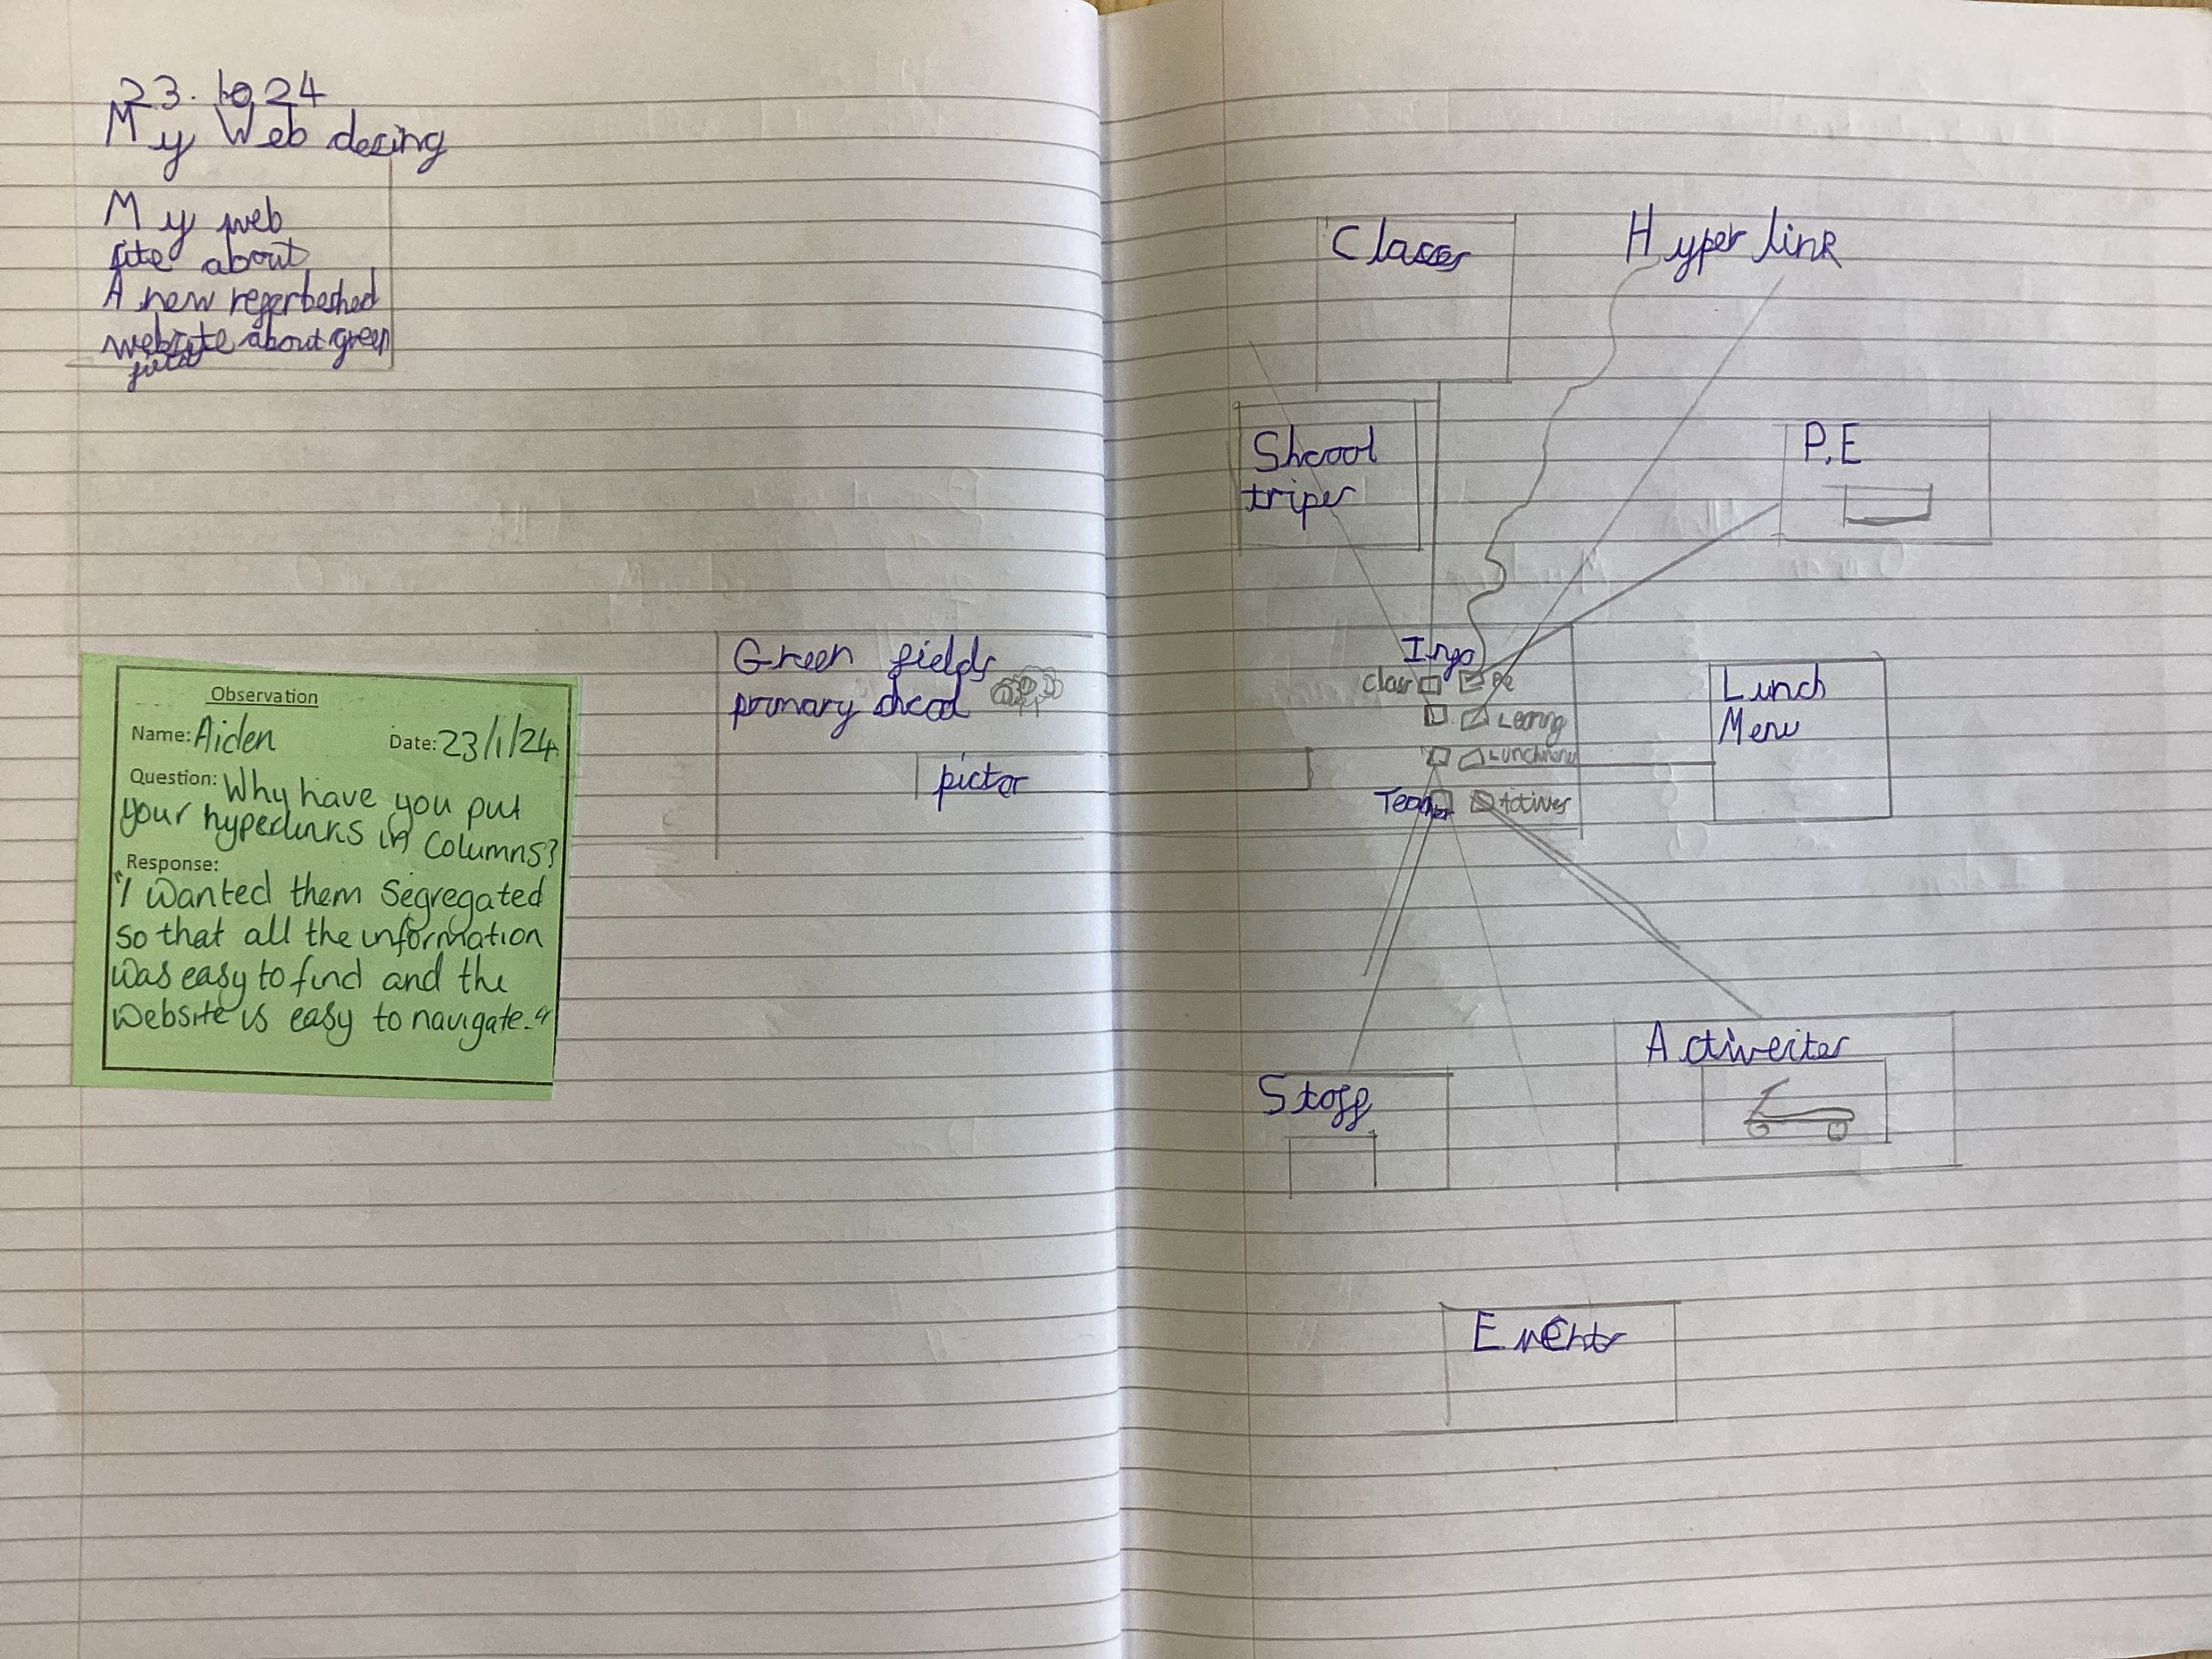 My Web desing
My web
site about
A new regerbeshed
website about green
field
Observation
Name: Aiden
Date: 23/1/24
Question: Why have you put
your hyperlinks in columns?
Response:
"I wanted them segregated
so that all the information
was easy to find and the
website is easy to navigate."
Green fields
primary shcool
pictor
Classes
Hyper link
Shcool
tripes
P.E
Info
class
PE
Learing
Lunchmenu
Teacher
Actives
Lunch
Menu
Staff
Activeites
Events